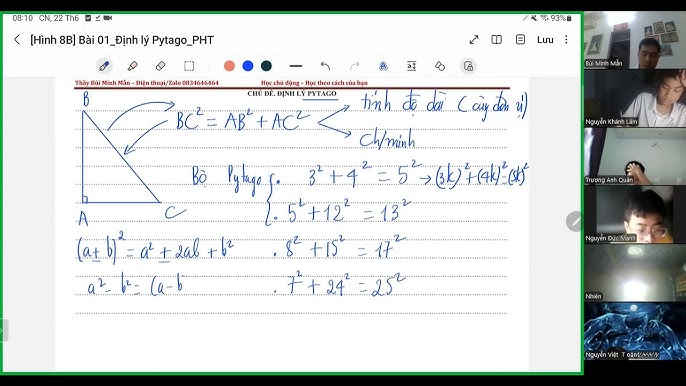 08:10 CN, 22 Th6
93%
[Hình 8B] Bài 01_Định lý Pytago_PHT
Lưu
Thầy Bùi Minh Mẫn - Điện thoại/Zalo 0834646464 Học chủ động - Học theo cách của bạn
CHỦ ĐỀ. ĐỊNH LÝ PYTAGO
B
A
C
BC² = AB² + AC²
tính độ dài (cùng đơn vị)
ch/minh
Bộ Pytago
. 3² + 4² = 5² → (3k)² + (4k)² = (5k)²
. 5² + 12² = 13²
(a ± b)² = a² ± 2ab + b²
. 8² + 15² = 17²
a² - b² = (a - b
. 7² + 24² = 25²
Bùi Minh Mẫn
Nguyễn Khánh Lâm
Trương Anh Quân
Nguyễn Đức Mạnh
Nhiên
Nguyễn Việt T